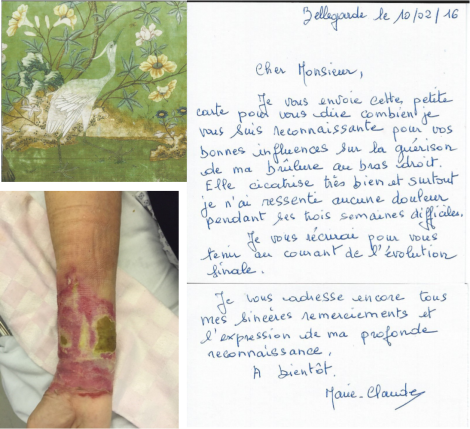 Bellegarde le 10/02/16
Cher Monsieur,
Je vous envoie cette petite
carte pour vous dire combien je
vous suis reconnaissante pour vos
bonnes influences sur la guérison
de ma brûlure au bras droit.
Elle cicatrise très bien et surtout
je n'ai ressenti aucune douleur
pendant ces trois semaines difficiles.
Je vous récrirai pour vous
tenir au courant de l'évolution
finale.
Je vous adresse encore tous
mes sincères remerciements et
l'expression de ma profonde
reconnaissance.
A bientôt.
Marie-Claude